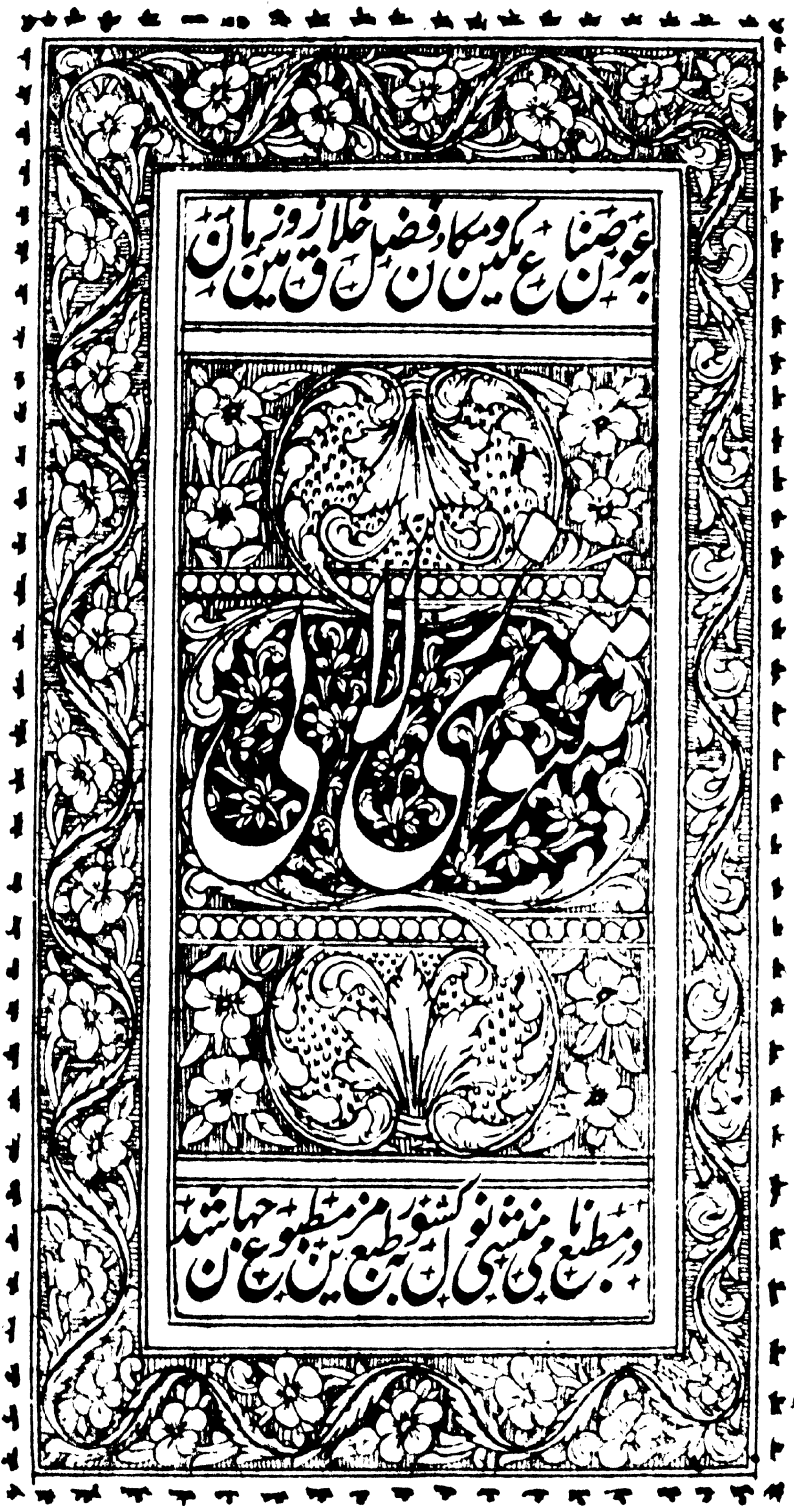 به عون صناع مکین و مکان فضل خلاق زمین و زمان
مثنوی زلالی
در مطبع نامی منشی نولکشور به طبع مزین مطبوع جهان شد